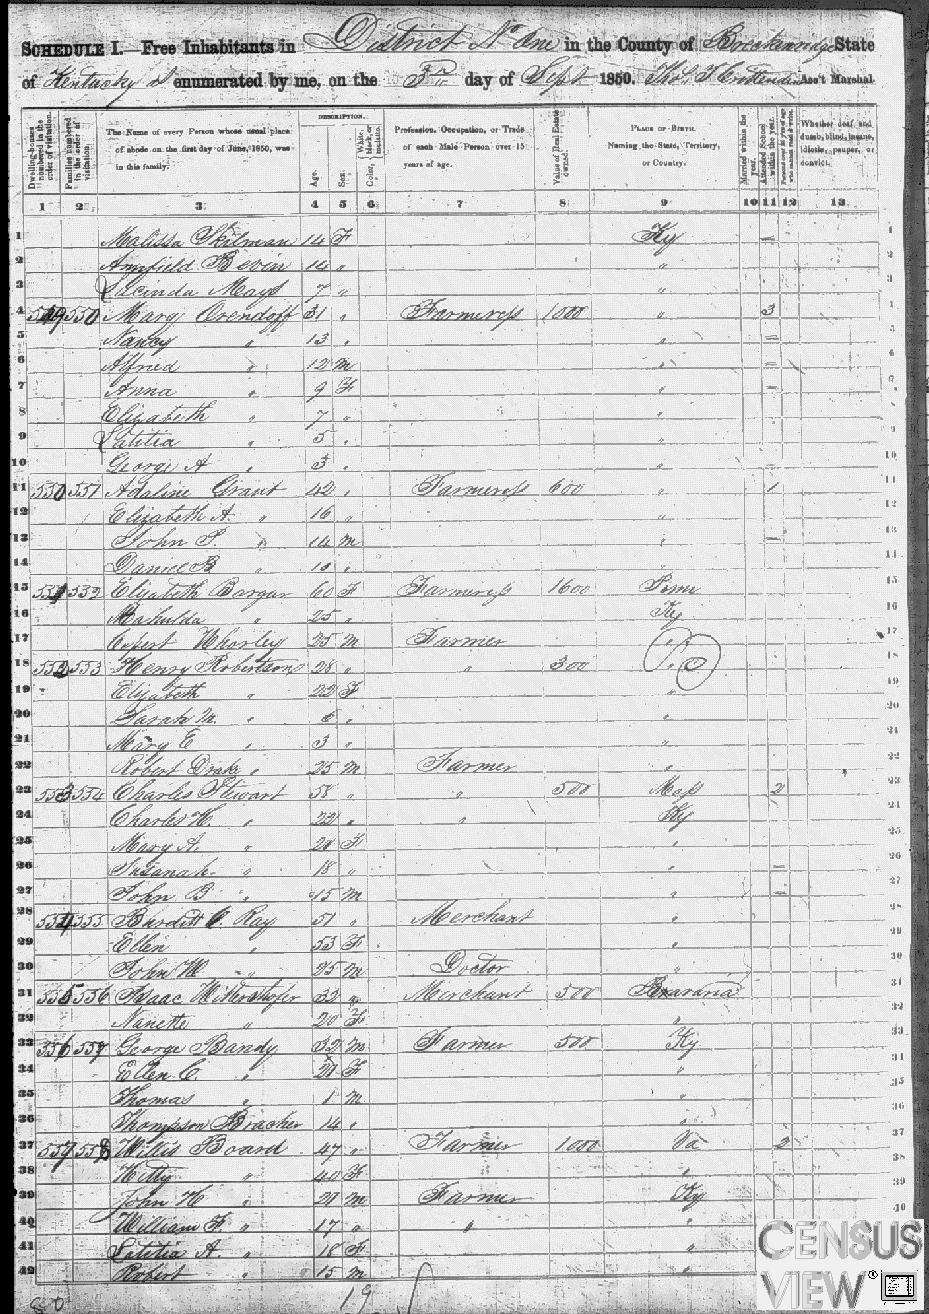 SCHEDULE I.—Free Inhabitants in District No One in the County of Breckenridge State
of Kentucky enumerated by me, on the 3rd day of Sept 1850. Ass't Marshal
Dwelling-houses numbered in the order of visitation.
Families numbered in the order of visitation.
The Name of every Person whose usual place of abode on the first day of June, 1850, was in this family.
DESCRIPTION.
Age.
Sex.
Color, White, black, or mulatto.
Profession, Occupation, or Trade of each Male Person over 15 years of age.
Value of Real Estate owned.
PLACE OF BIRTH. Naming the State, Territory, or Country.
Married within the year.
Attended School within the year.
Persons over 20 y'rs of age who cannot read & write.
Whether deaf and dumb, blind, insane, idiotic, pauper, or convict.
1 2 3 4 5 6 7 8 9 10 11 12 13
1 Malissa Skilman 14 F Ky
2 Bevin 14 "
3 Lucinda Mays 7 " "
4 549 550 Mary Orendoff 31 " Farmeress 1000 " 3
5 Nancy " 13 " "
6 Alfred " 12 m "
7 Anna " 9 F "
8 Elizabeth " 7 " "
9 Latitia " 5 "
10 George A " 3 " "
11 550 551 Adaline Grant 42 " Farmeress 600 " 1
12 Elizabeth A. " 16 " "
13 John " 14 m "
14 Daniel B " 10 " "
15 551 552 Elizabeth Bargur 60 F Farmeress 1600 Penn
16 Mahulda " 25 " Ky
17 Whorley 25 m Farmer "
18 552 553 Henry Robertson 28 " " 300 "
19 Elizabeth " 22 F "
20 Sarah M. " " "
21 Mary E " 3 " "
22 Robert Drake " 25 m Farmer "
23 553 554 Charles Stewart 58 " " 500 Mass 2
24 Charles H. " 22 " " Ky
25 Mary A. " F "
26 Susanah " 18 " "
27 John B " 15 m "
28 554 555 Burdett C. Ray 51 " Merchant "
29 Ellen " 53 F "
30 John W " 25 m Doctor "
31 555 556 Isaac 32 " Merchant 500 Bavaria
32 Nanette " 20 F "
33 556 557 George Bandy 32 m Farmer 500 Ky
34 Ellen C. " 21 F "
35 Thomas " 1 m "
36 Thompson Bracher 14 " "
37 557 558 Willis Board 47 " Farmer 1000 Va 2
38 Kitty " 40 F "
39 John H " 21 m Farmer Ky
40 William F " 17 " " "
41 Latitia A. " 18 F "
42 Robert " 15 m
80 19
CENSUS
VIEW®